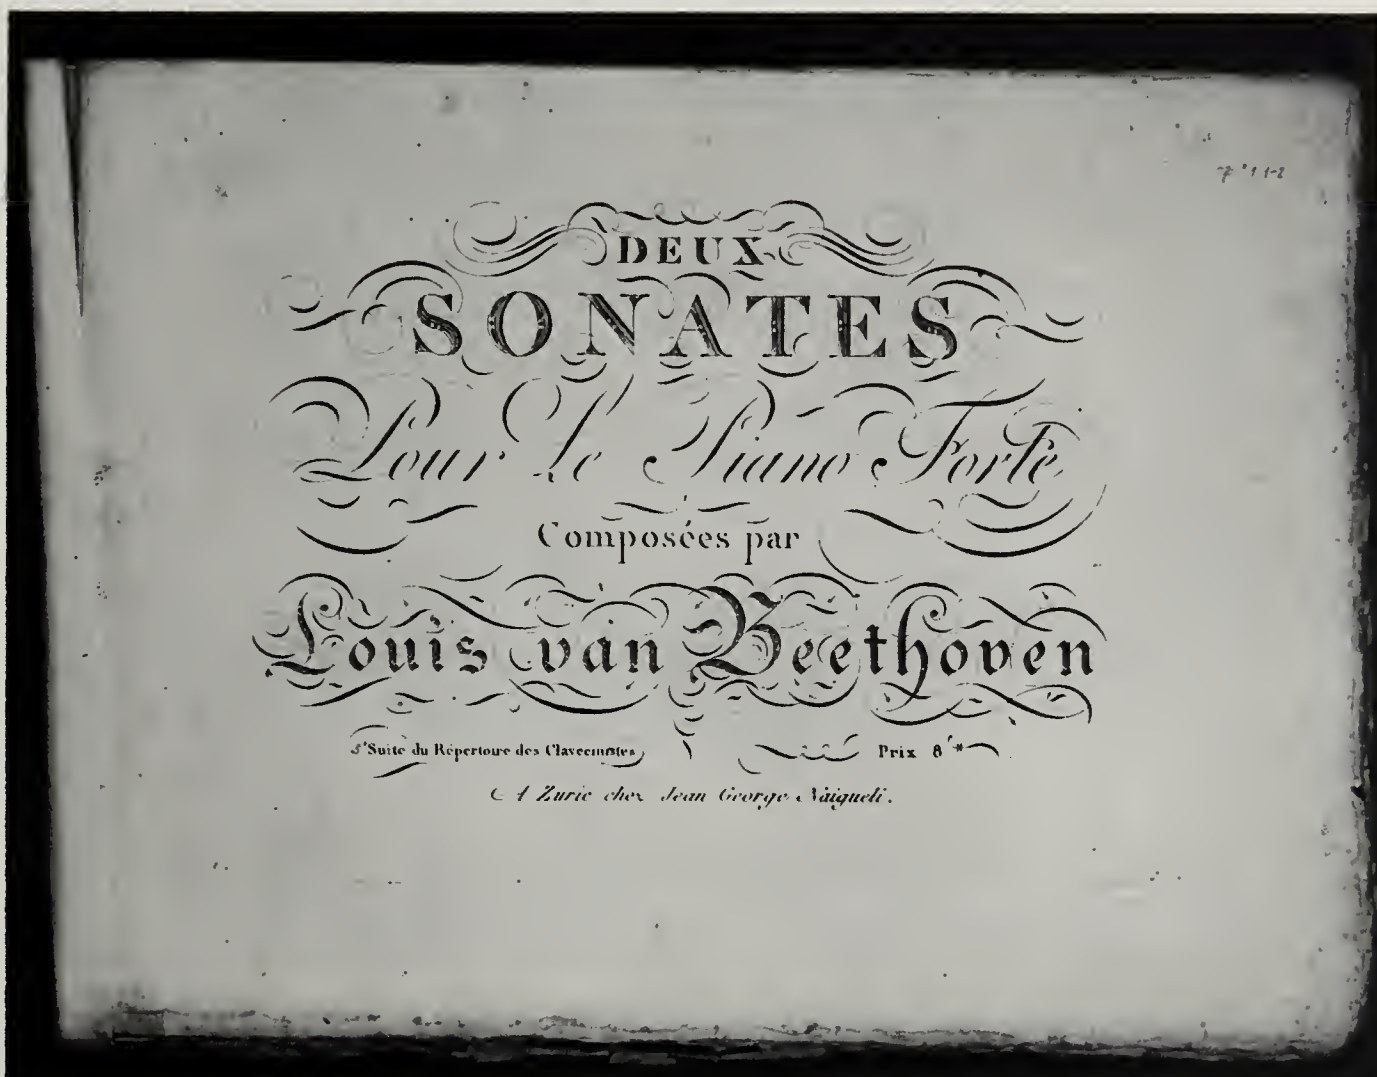 DEUX
SONATES
Pour le Piano Forte
Composées par
Louis van Beethoven
5ᵉ Suite du Répertoire des Clavecinistes
Prix 8
A Zuric chez Jean George Näigueli.